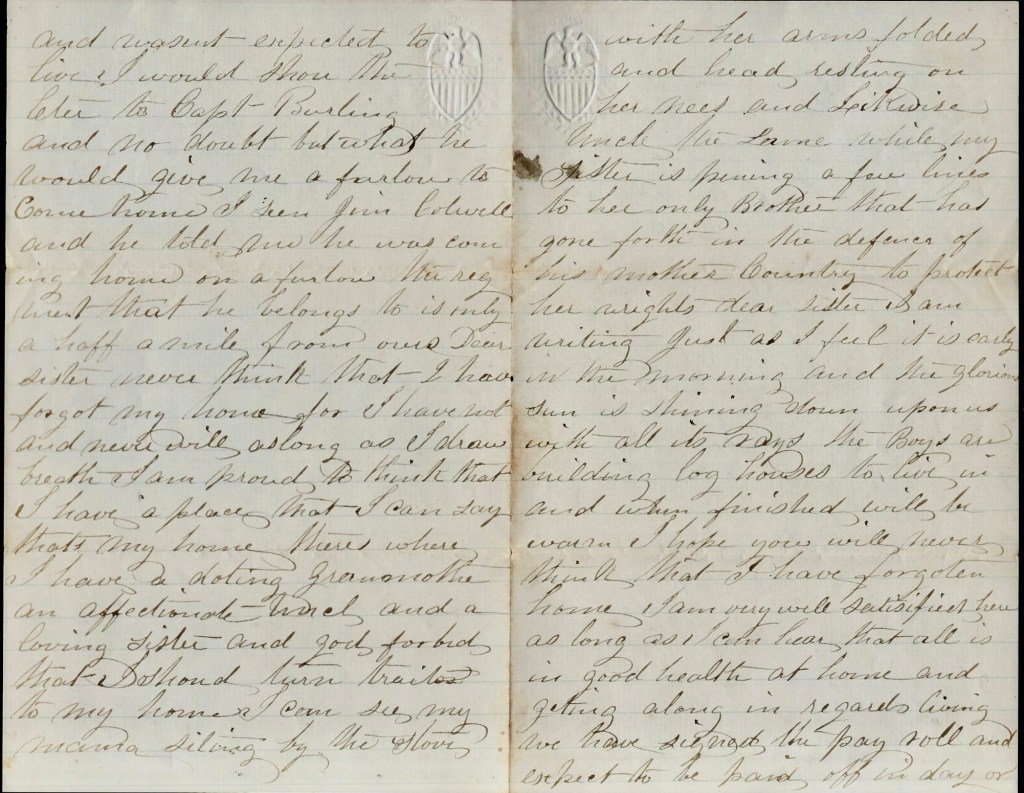 and wasent expected to
live I would show the
leter to Capt Burling
and no doubt but what he
would give me a furlow to
Come home I seen Jim Colwell
and he told me he was com
ing home on a furlow the reg
ment that he belongs to is only
a haff a mile from ours Dear
sister never think that I have
forgot my home for I have not
and never will aslong as I draw
breath I am proud to think that
I have a place that I can say
thats my home theres where
I have a doting Grandmothe
an affectionate Uncl and a
loving sister and god forbid
that I shoud turn traitor
to my home I can see my
mama siting by the stove
with her arms folded
and head resting on
her nees and Likwise
Uncle the same while my
Sister is pening a few lines
to her only Brother that has
gone forth in the defence of
his mother Country to protect
her wrights dear sister I am
writing Just as I feel it is early
in the morning and the glorious
sun is shining down upon us
with all its rays the Boys are
building log houses to live in
and when finished will be
warm I hope you will never
think that I have forgoten
home I am very well satisified here
as long as I can hear that all is
in good health at home and
geting along in regards living
we have signed the pay roll and
expect to be paid off in day or